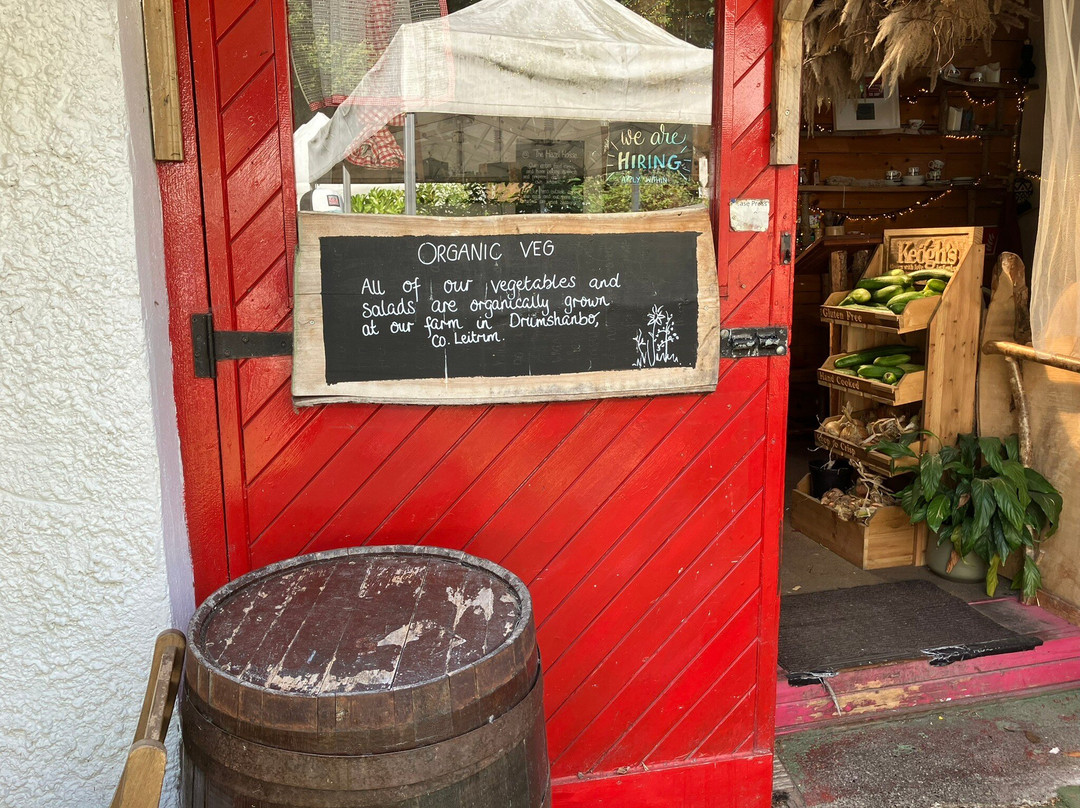 we are
HIRING
APPLY WITHIN
ORGANIC VEG
All of our vegetables and
salads are organically grown
at our farm in Drumshanbo,
Co. Leitrim.
Keogh's
Gluten Free
Hand Cooked
Crop to Crisp